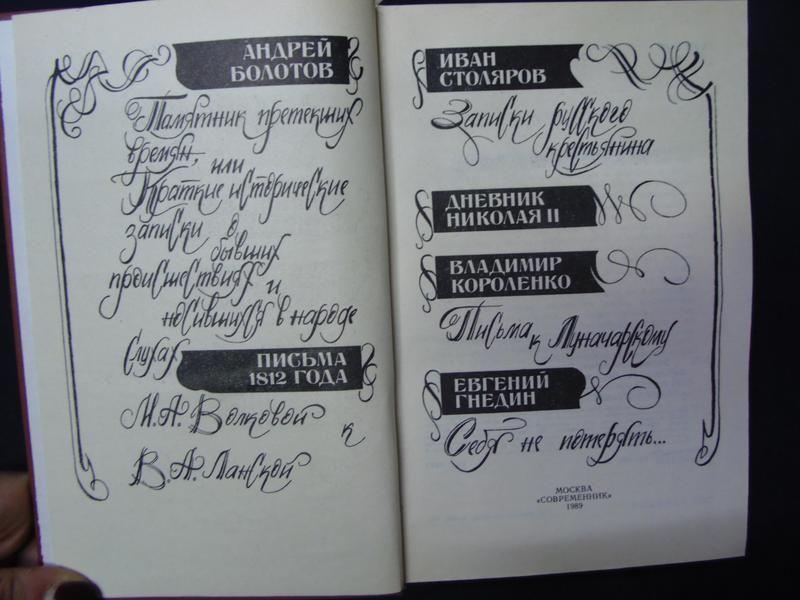 АНДРЕЙ
БОЛОТОВ
Памятник претекших
времян, или
Краткие исторические
записки о
бывших
происшествиях и
носившихся в народе
слухах
ПИСЬМА
1812 ГОДА
М.А. Волковой
к
В.А. Ланской
ИВАН
СТОЛЯРОВ
Записки русского
крестьянина
ДНЕВНИК
НИКОЛАЯ II
ВЛАДИМИР
КОРОЛЕНКО
Письма к Луначарскому
ЕВГЕНИЙ
ГНЕДИН
Себя не потерять...
МОСКВА
«СОВРЕМЕННИК»
1989